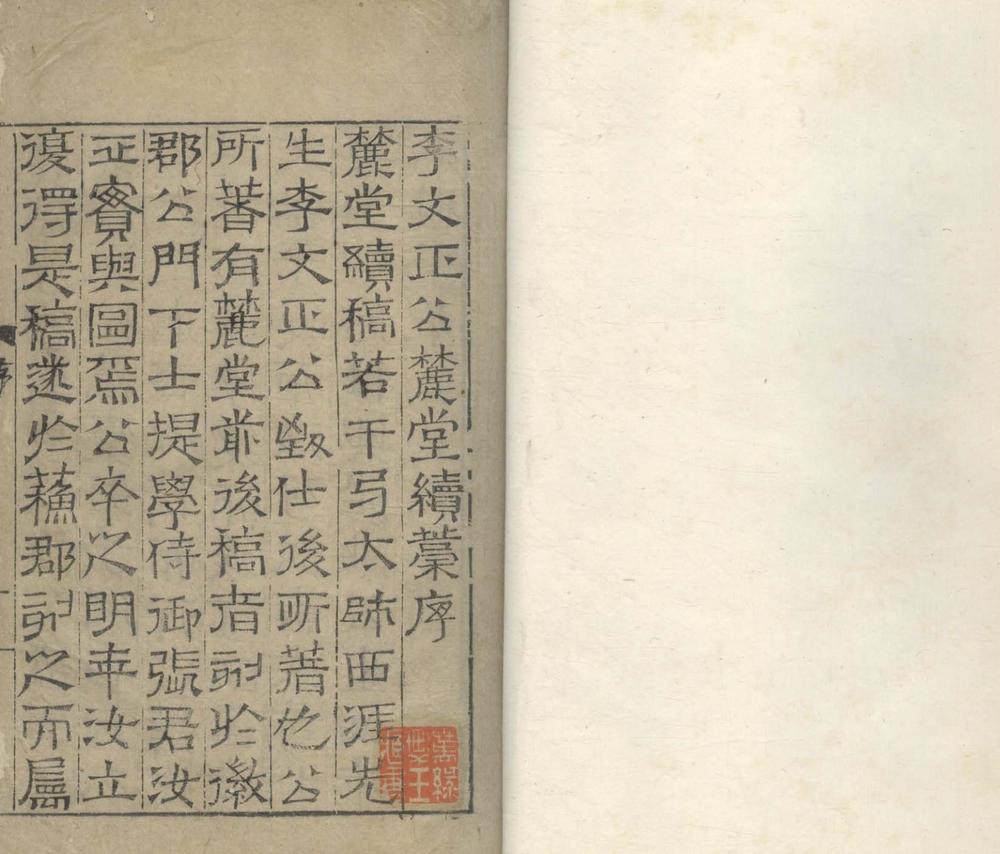 李文正公麓堂續藁序
麓堂續稿若干弓太師西涯先
生李文正公致仕後所著也公
所著有麓堂前後稿者刻於徽
郡公門下士提學侍御張君汝
立實與圖焉公卒之明年汝立
復得是稿遂於蘇郡刻之而屬
序